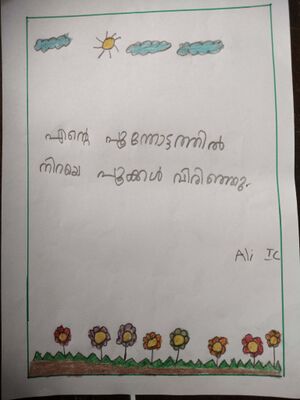 എന്റെ പൂന്തോട്ടത്തിൽ
നിറയെ പൂക്കൾ വിരിഞ്ഞു.
Ali IC